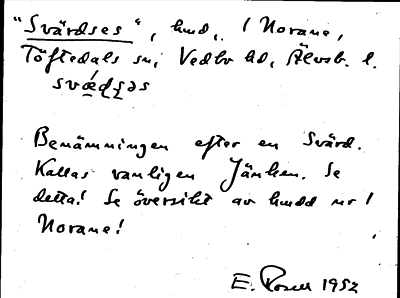 "Svärdses", hmd, i Norane,
Töftedals sn, Vedbo hd, Älvsb. l.
svǽḍṣəs
Benämningen efter en Svärd.
Kallas vanligen Jänken. Se
detta! Se översikt av hmdd nr 1
Norane!
E. Rosell 1952